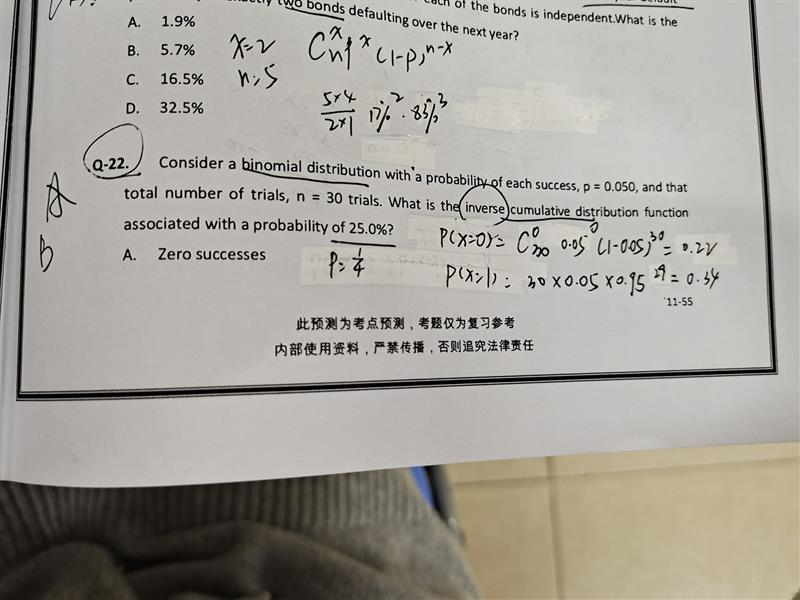 each of the bonds is independent.What is the
exactly two bonds defaulting over the next year?
A. 1.9%
B. 5.7%
C. 16.5%
D. 32.5%
x=2
n=5
C n x p x (1-p) n-x
5×4
2×1
17% 2 · 83% 3
Q-22. Consider a binomial distribution with a probability of each success, p = 0.050, and that
total number of trials, n = 30 trials. What is the inverse cumulative distribution function
associated with a probability of 25.0%?
A
B
A. Zero successes
P= 1/4
P(X=0)= C 0 30 0.05 0 (1-0.05) 30 = 0.22
P(X=1)= 30×0.05×0.95 29 = 0.34
11-55
此预测为考点预测，考题仅为复习参考
内部使用资料，严禁传播，否则追究法律责任